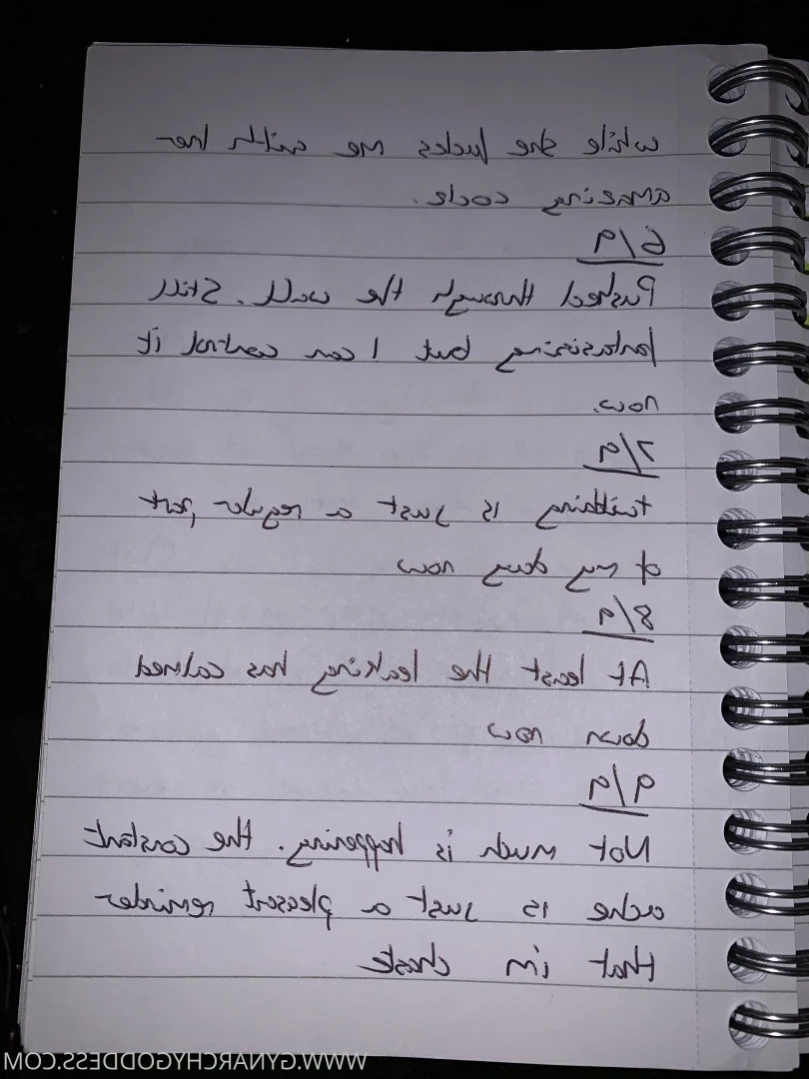 while she fucks me with her
amazing cock.
6/9
Pushed through the wall. Still
fantasising but I can control it
now.
7/9
twitching is just a regular part
of my day now
8/9
At least the leaking has calmed
down now
9/9
Not much is happening. the constant
ache is just a pleasant reminder
that i'm chaste
WWW.GYNARCHYGODDESS.COM